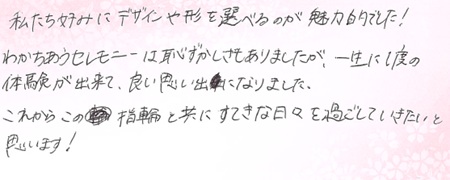 私たち好みにデザインや形を選べるのが魅力的でした!
わかちあうセレモニーは恥ずかしさもありましたが、一生に1度の
体験が出来て、良い思い出になりました。
これからこの指輪と共にすてきな日々を過ごしていきたいと
思います!